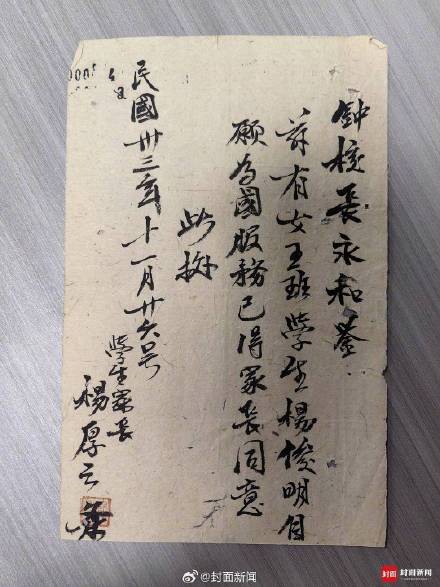 钟校長永和鉴
茲有女五班學生楊俊明自
願为國服務已得家長同意
此
民國卅三年十一月廿六号
學生家長
楊厚云
@封面新闻
封面 封面新闻